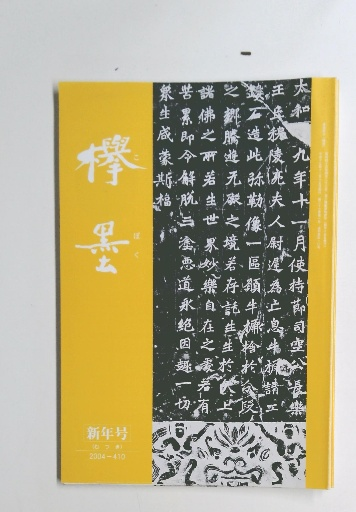 欅墨
ぼく
新年号
2004-410
太和九年十一月使持節司空公長樂
王丘穆陵亮夫人尉遲為亡息牛橛請工
鏤石造此弥勒像一區願牛橛捨於分段
之鄉騰遊无礙之境若存託生生於天上
諸佛之所若生世界妙樂自在之處若有
苦累即令解脱三塗惡道永絶因趣一切
衆生咸蒙斯福